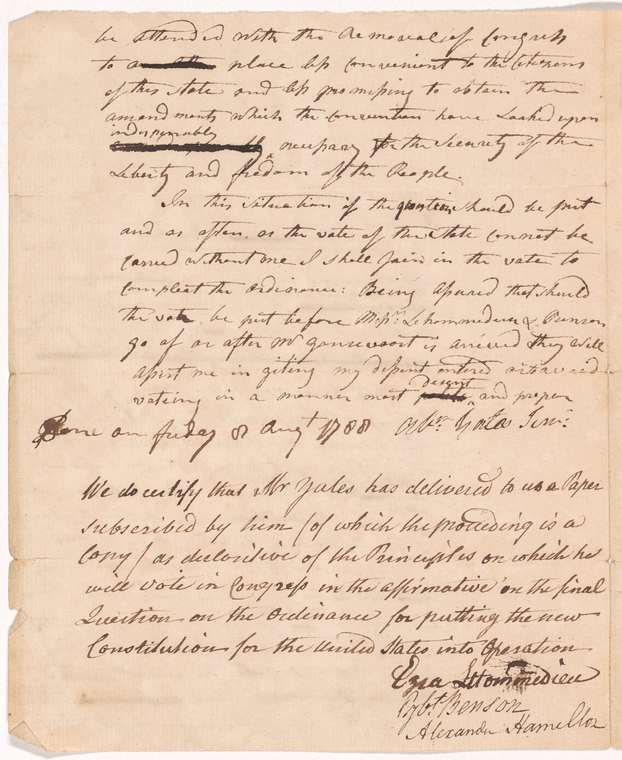 be attended with the Removeal of Congress
to a place less convenient to the Citizens
of this state and less promissing to obtain the
amendments which the convention have Looked upon
indispensably
necessary for the Security of the
Liberty and freedom of the People.
In this situation if the question should be put
and as often as the vote of the State cannot be
carried without me I shall join in the vote to
compleat the ordinance: Being assured that should
the vote be put before Messrs. Lehommedieu & Benson
go of or after Mr Gansevoort is arrived they will
assist me in giting my dissent entered or traversed
voteing in a manner most and proper
decent
Done on friday 8 Augt 1788 Abm. Yates Junr.
We do certify that Mr Yates has delivered to us a Paper
subscribed by him (of which the preceeding is a
Copy) as declaritive of the Principles on which he
will vote in Congress in the affirmative on the final
Question on the Ordinance for putting the new
Constitution for the United States into Operation
Ezra L'Hommedieu
Egbt. Benson
Alexander Hamilton